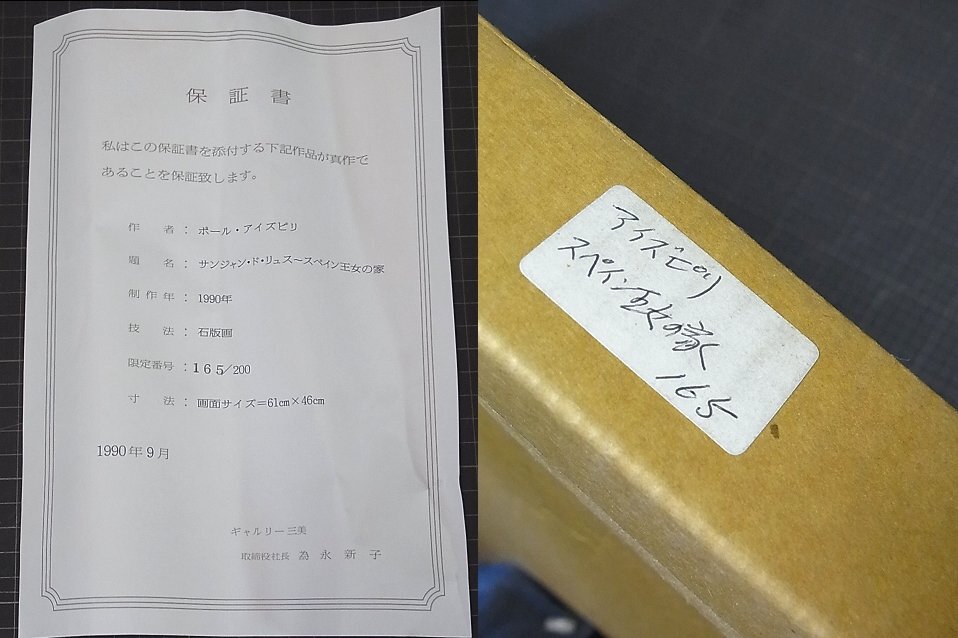 保証書
私はこの保証書を添付する下記作品が真作で
あることを保証致します。
作者：ポール・アイズピリ
題名：サンジャン・ド・リュス～スペイン王女の家
制作年：1990年
技法：石版画
限定番号：165/200
寸法：画面サイズ＝61cm×46cm
1990年9月
ギャルリー三美
取締役社長 為永新子
アイズピリ
スペイン王女の家
165